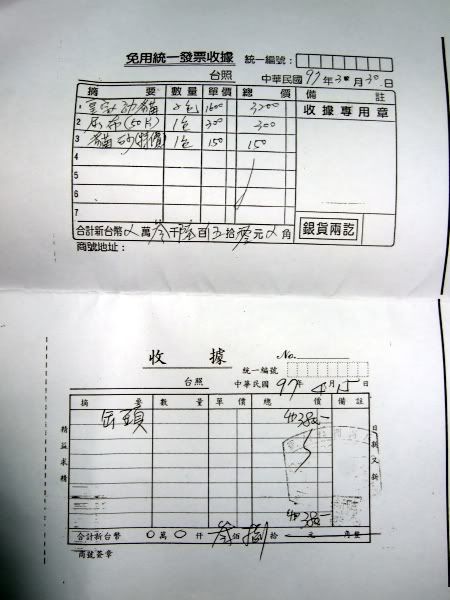 免用統一發票收據 統一編號：
台照 中華民國97年3月30日
摘 要 數量 單價 總 價 備 註
1 皇家幼貓 2包 1600 3200 收據專用章
2 尿布(50片) 1包 300 300
3 貓砂(特價) 1包 150 150
4
5
6
7
合計新台幣 萬叁千陸百五拾零元 角 銀貨兩訖
商號地址：
收 據 No.
統一編號
台照 中華民國97年4月15日
摘 要 數 量 單 價 總 價 備 註
罐頭 380
精益求精
日新又新
380
合計新台幣 0萬0仟叁佰捌拾 元 角整
商號簽章